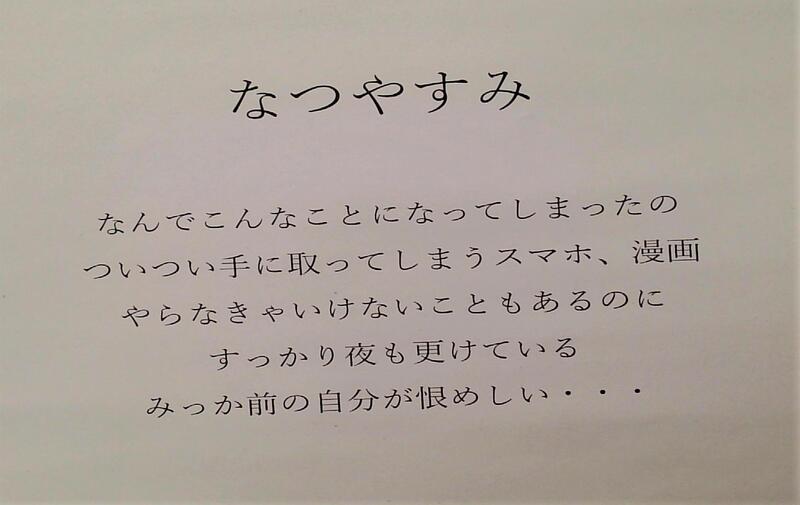 なつやすみ
なんでこんなことになってしまったの
ついつい手に取ってしまうスマホ、漫画
やらなきゃいけないこともあるのに
すっかり夜も更けている
みっか前の自分が恨めしい・・・